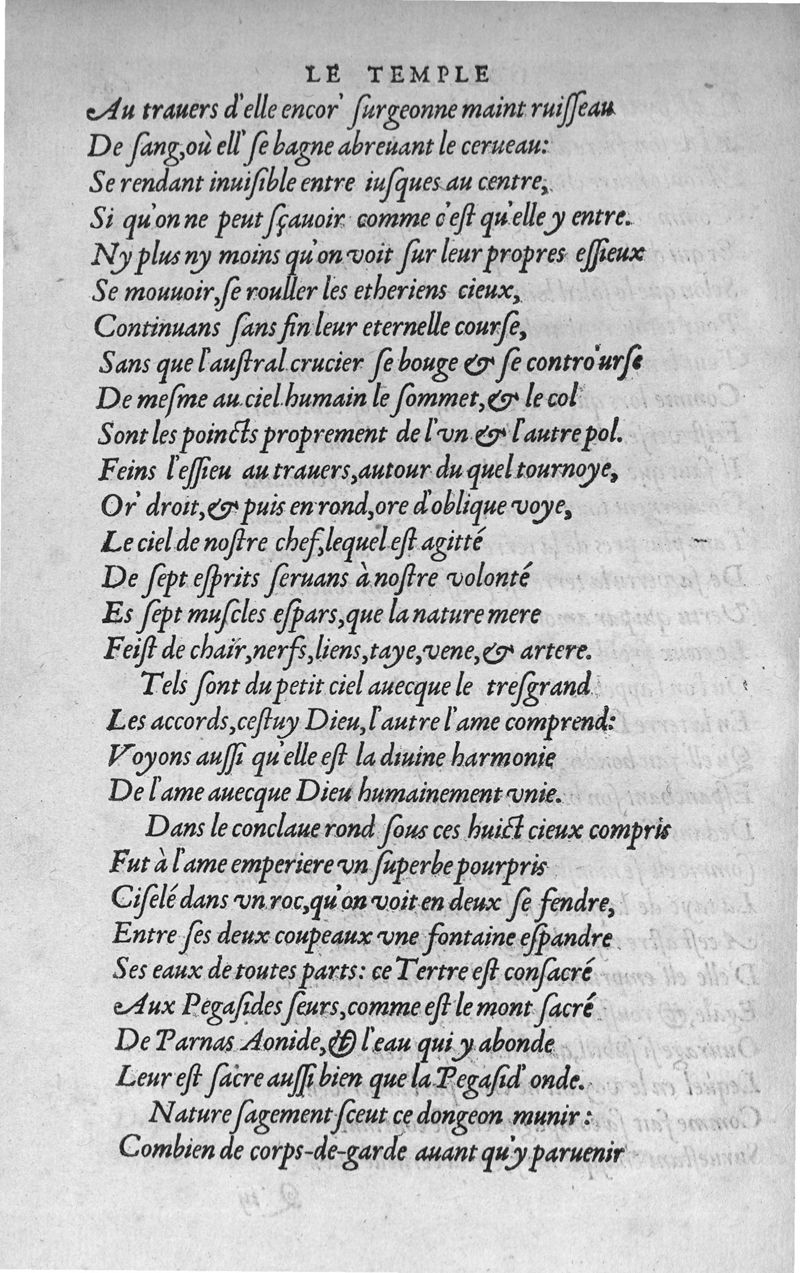 LE TEMPLE
Au trauers d'elle encor' ſurgeonne maint ruiſſeau
De ſang, où ell' ſe bagne abreuant le cerueau:
Se rendant inuiſible entre iuſques au centre,
Si qu'on ne peut ſçauoir comme c'eſt qu'elle y entre.
Ny plus ny moins qu'on voit ſur leur propres eſſieux
Se mouuoir, ſe rouller les etheriens cieux,
Continuans ſans fin leur eternelle courſe,
Sans que l'auſtral crucier ſe bouge & ſe contro'urſe
De meſme au ciel humain le ſommet, & le col
Sont les poincts proprement de l'vn & l'autre pol.
Feins l'eſſieu au trauers, autour du quel tournoye,
Or' droit, & puis en rond, ore d'oblique voye,
Le ciel de noſtre chef, lequel eſt agitté
De ſept eſprits ſeruans à noſtre volonté
Es ſept muſcles eſpars, que la nature mere
Feiſt de chair, nerfs, liens, taye, vene, & artere.
Tels ſont du petit ciel auecque le treſgrand
Les accords, ceſtuy Dieu, l'autre l'ame comprend:
Voyons auſſi qu'elle eſt la diuine harmonie
De l'ame auecque Dieu humainement vnie.
Dans le conclaue rond ſous ces huict cieux compris
Fut à l'ame emperiere vn ſuperbe pourpris
Ciſelé dans vn roc, qu'on voit en deux ſe fendre,
Entre ſes deux coupeaux vne fontaine eſpandre
Ses eaux de toutes parts: ce Tertre eſt conſacré
Aux Pegaſides ſeurs, comme eſt le mont ſacré
De Parnas Aonide, & l'eau qui y abonde
Leur eſt ſacre auſſi bien que la Pegaſid' onde.
Nature ſagement ſceut ce dongeon munir:
Combien de corps-de-garde auant qu'y paruenir